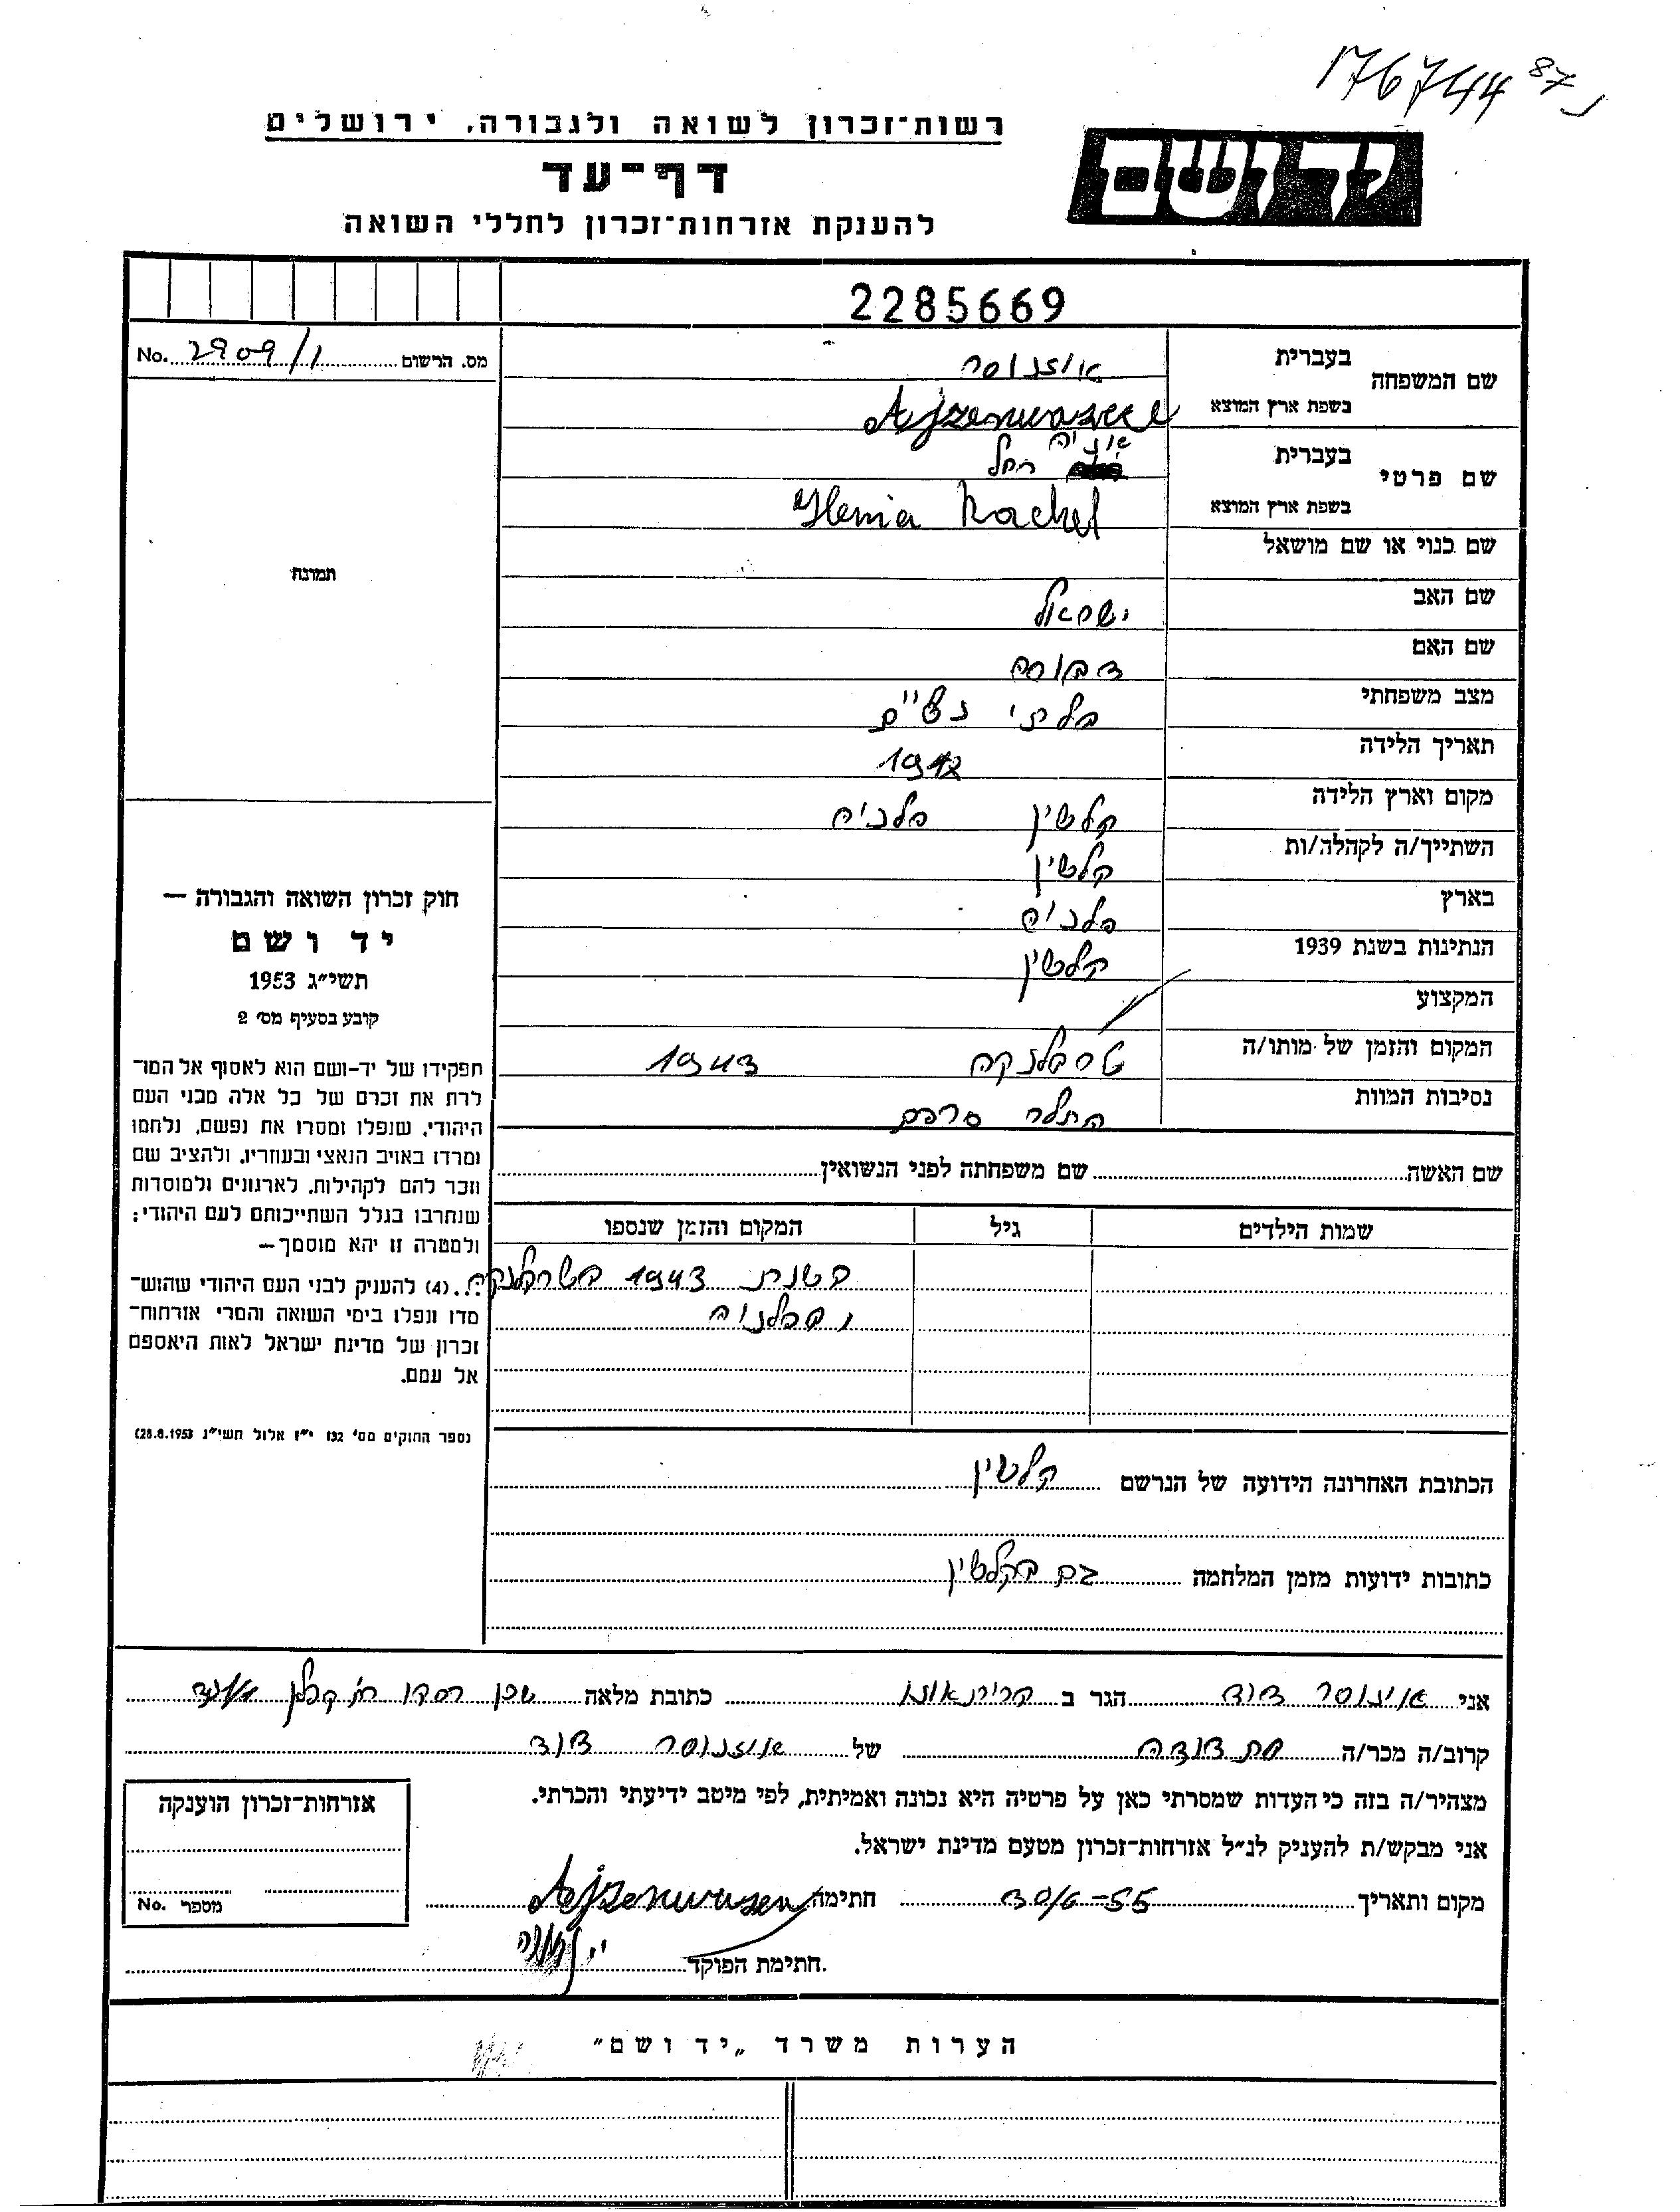 176744 87
רשות־זכרון לשואה ולגבורה, ירושלים
יד ושם
דף־עד
להענקת אזרחות־זכרון לחללי השואה
2285669
מס. הרשום 2909/1 No.
שם המשפחה
בעברית
בשפת ארץ המוצא
Ajzenwaser
שם פרטי
בעברית רחל
בשפת ארץ המוצא Rachel
שם כנוי או שם מושאל
שם האב ישראל
שם האם דבורה
מצב משפחתי בלתי
תאריך הלידה 1912
מקום וארץ הלידה קלטשין פלניה
השתייך/ה לקהלה/ות קלטשין
בארץ פלניה
הנתינות בשנת 1939 קלטשין
המקצוע
המקום והזמן של מותו/ה טרבלנקה 1943
נסיבות המוות
שם האשה שם משפחתה לפני הנשואין
שמות הילדים גיל המקום והזמן שנספו
בשנת 1943 בטרבלנקה
הכתובת האחרונה הידועה של הנרשם קלטשין
כתובות ידועות מזמן המלחמה גם בקלטשין
תמונה
חוק זכרון השואה והגבורה —
יד ושם
תשי״ג 1953
קובע בסעיף מס׳ 2
תפקידו של יד-ושם הוא לאסוף אל המו־
לדת את זכרם של כל אלה מבני העם
היהודי, שנפלו ומסרו את נפשם, נלחמו
ומרדו באויב הנאצי ובעוזריו, ולהציב שם
וזכר להם לקהילות, לארגונים ולמוסדות
שנחרבו בגלל השתייכותם לעם היהודי;
ולמטרה זו יהא מוסמך—
...(4) להעניק לבני העם היהודי שהוש־
מדו ונפלו בימי השואה והמרי אזרחות־
זכרון של מדינת ישראל לאות היאספם
אל עמם.
(ספר החוקים מס׳ 132 י״ז אלול תשי״ג 28.8.1953)
אני דוד הגר ב קרית אונו כתובת מלאה
קרוב/ה מכר/ה בת דודה של דוד
מצהיר/ה בזה כי העדות שמסרתי כאן על פרטיה היא נכונה ואמיתית, לפי מיטב ידיעתי והכרתי.
אני מבקש/ת להעניק לנ״ל אזרחות־זכרון מטעם מדינת ישראל.
מקום ותאריך חתימה
חתימת הפוקד
אזרחות־זכרון הוענקה
מספר No.
הערות משרד „יד ושם״